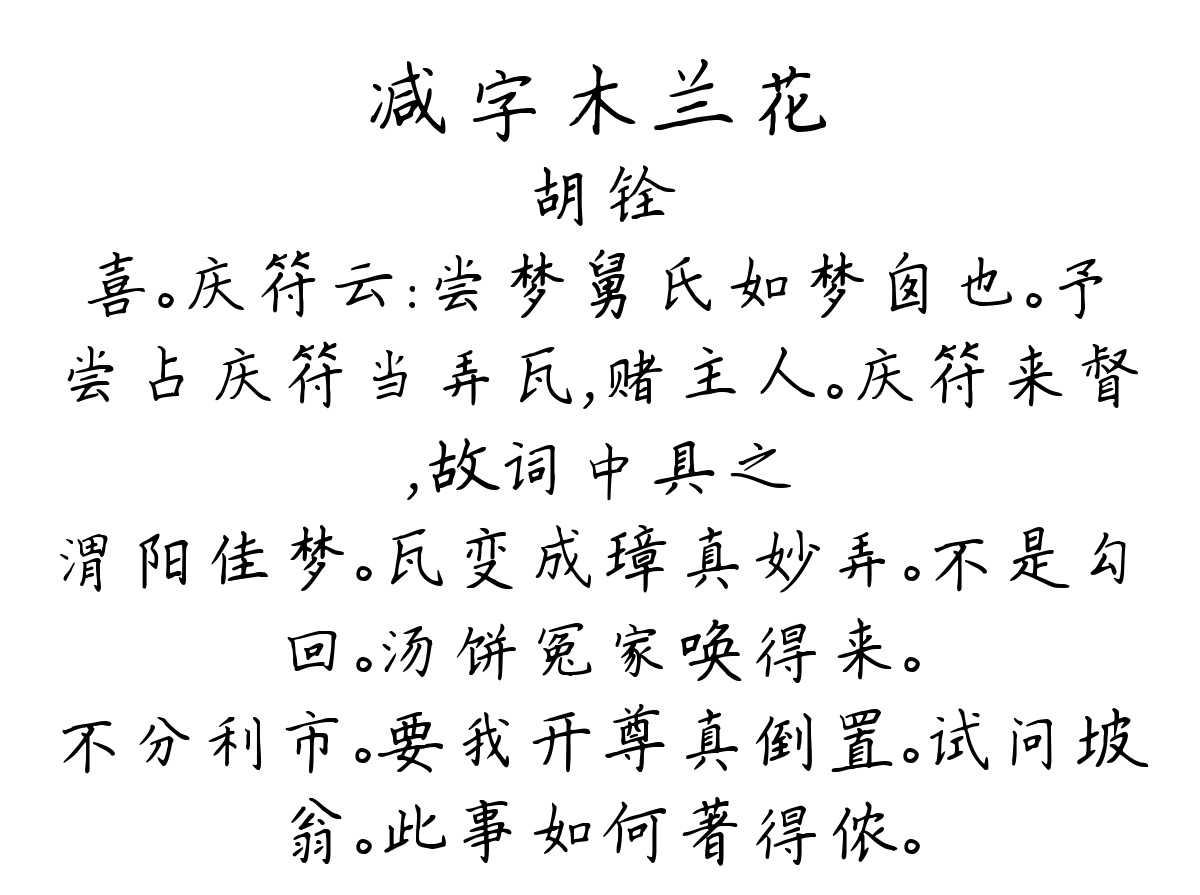 减字木兰花
胡铨
喜。庆符云:尝梦舅氏如梦囱也。予
尝占庆符当弄瓦,赌主人。庆符来督
,故词中具之
渭阳佳梦。瓦变成璋真妙弄。不是勾
回。汤饼冤家唤得来。
不分利市。要我开尊真倒置。试问坡
翁。此事如何著得侬。